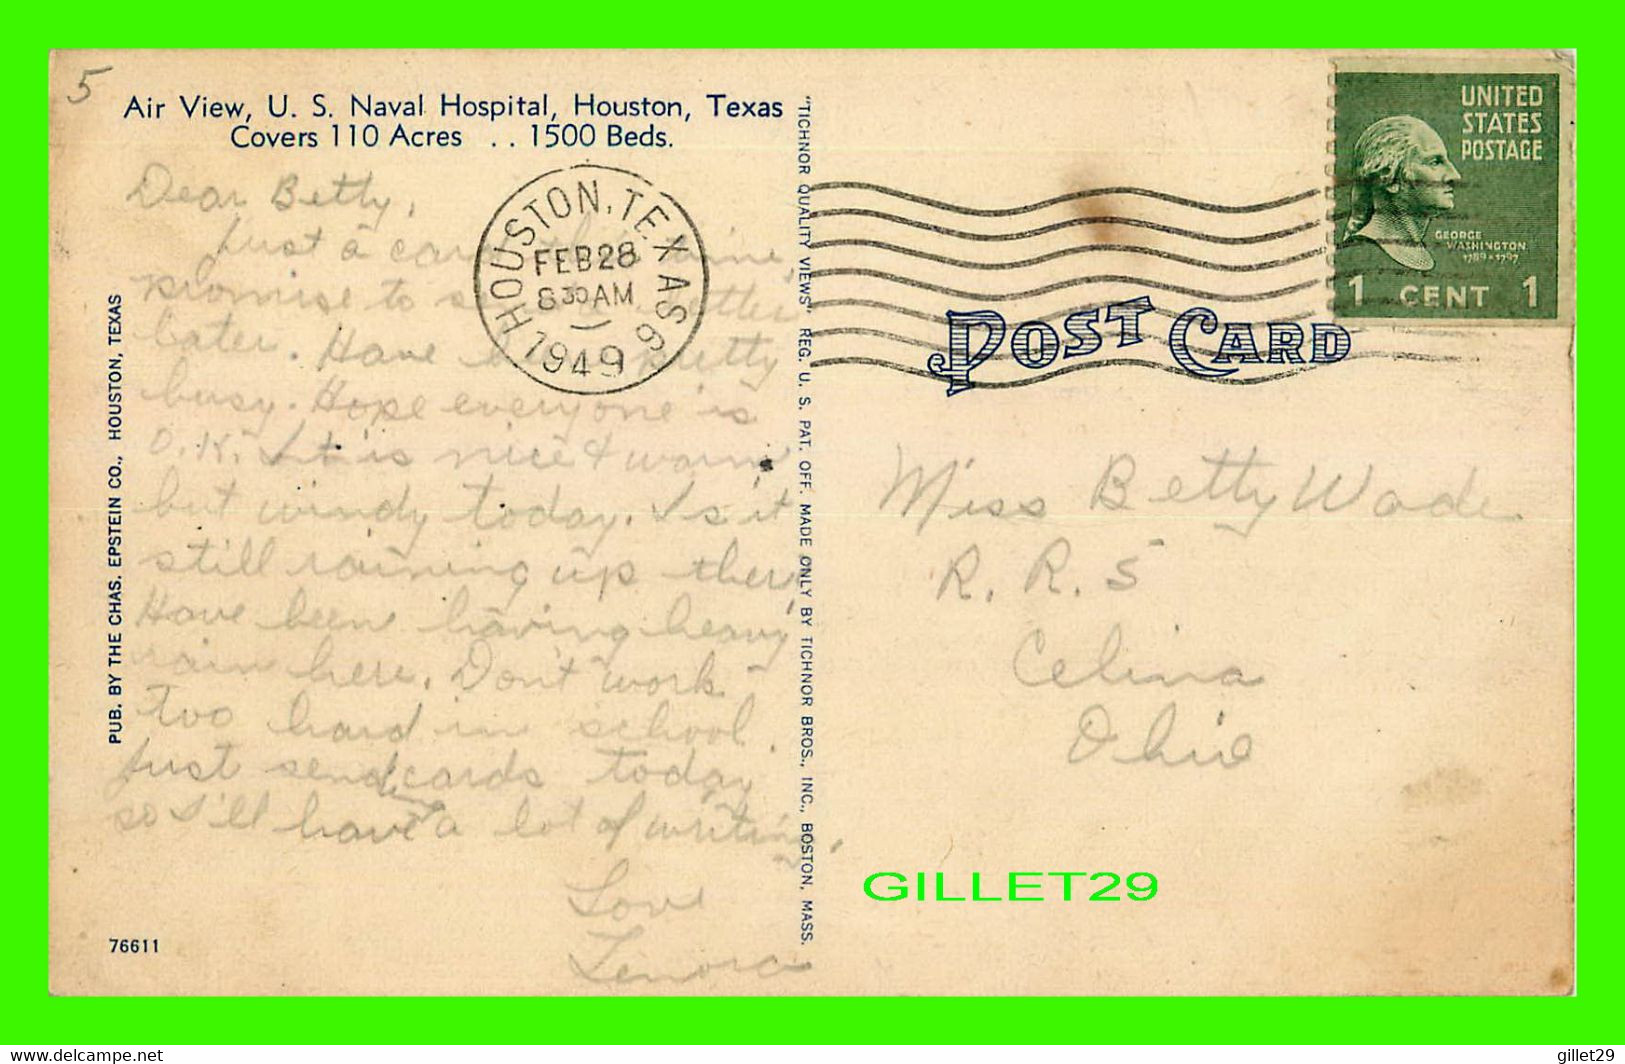 5
Air View, U. S. Naval Hospital, Houston, Texas
Covers 110 Acres . . 1500 Beds.
Dear Betty,
Just a card this time,
promise to send a letter
later. Have been pretty
busy. Hope everyone is
O.K. It is nice & warm
but windy today. Is it
still raining up there,
Have been having heavy
rain here. Don't work
too hard in school.
Just send cards today
so I'll have a lot of writing.
Love
Lenora
76611
PUB. BY THE CHAS. EPSTEIN CO., HOUSTON, TEXAS
HOUSTON, TEXAS 9
FEB 28
8 30 AM
1949
"TICHNOR QUALITY VIEWS" REG. U. S. PAT. OFF. MADE ONLY BY TICHNOR BROS., INC., BOSTON, MASS.
UNITED
STATES
POSTAGE
GEORGE
WASHINGTON
1789-1797
1 CENT 1
POST CARD
Miss Betty Wade
R. R. 5
Celina
Ohio
GILLET29
www.delcampe.net
gillet29